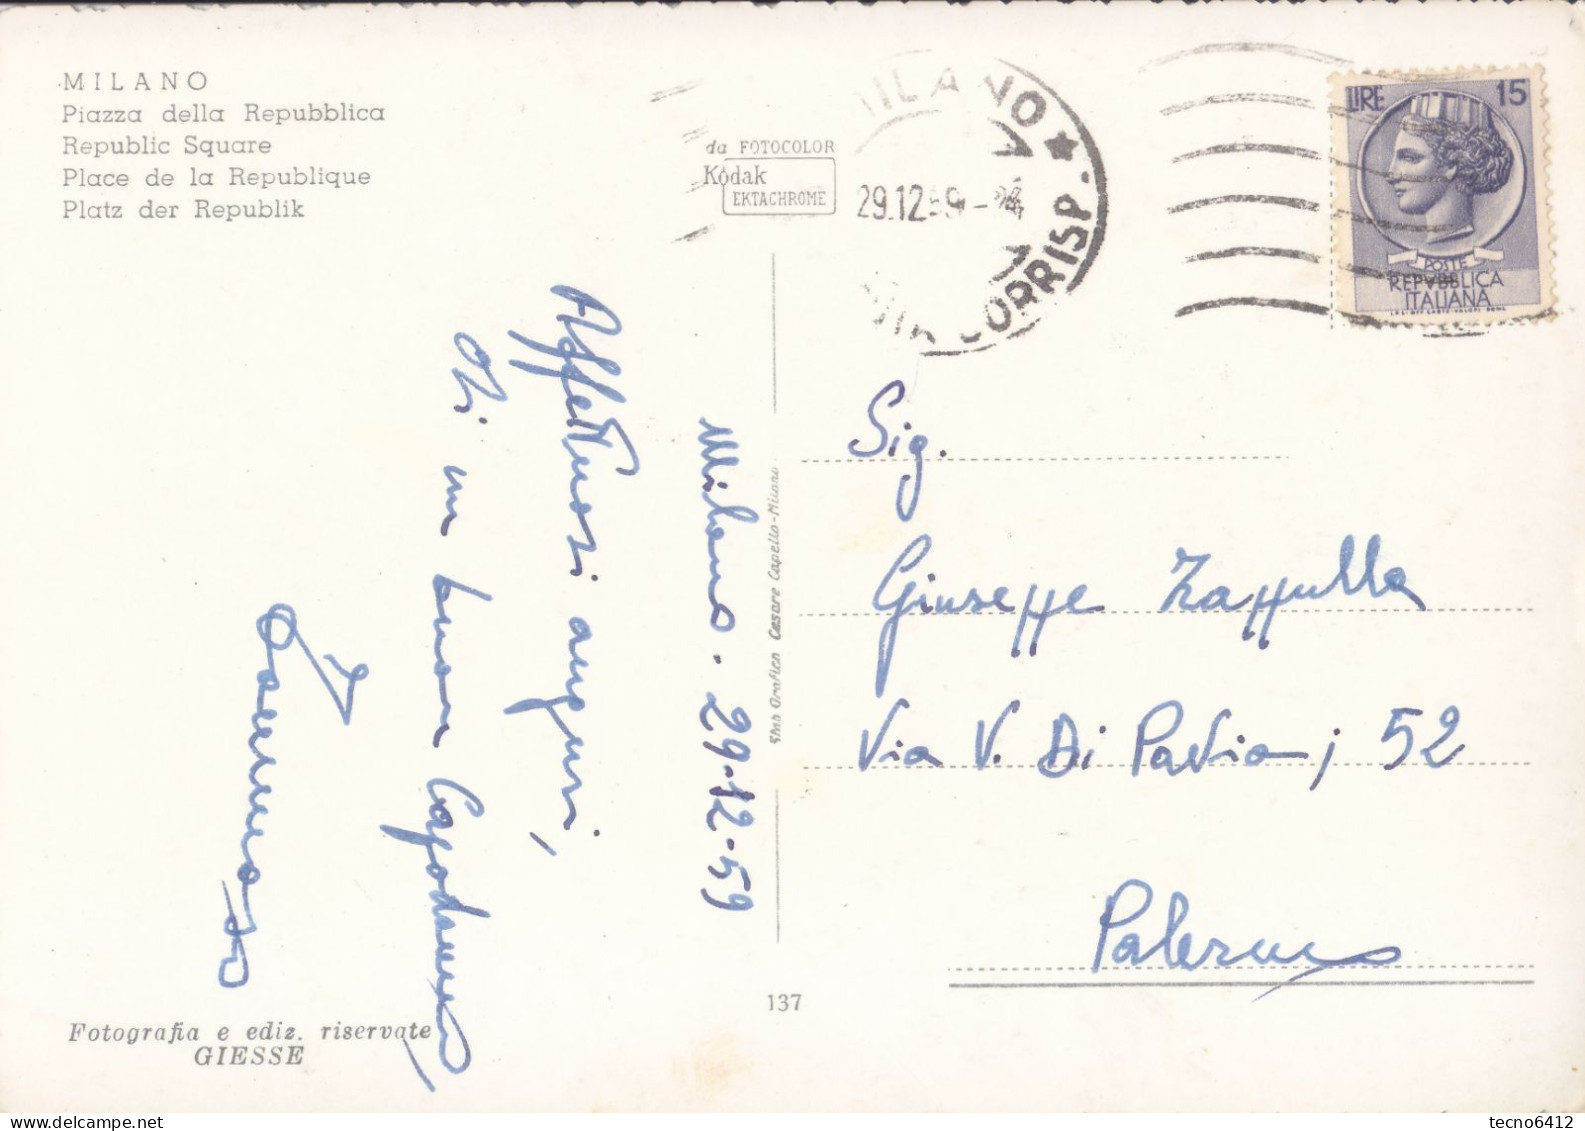 MILANO
Piazza della Repubblica
Republic Square
Place de la Republique
Platz der Republik
da FOTOCOLOR
Kodak
EKTACHROME
MILANO
29.12.59
CORRISP.
LIRE 15
POSTE
REPVBBLICA
ITALIANA
Milano. 29-12-59
Affettuosi auguri,
di un buon Capodanno
Tommaso
Stab Grafico Cesare Capello-Milano
Sig.
Giuseppe Zappulla
Via V. Di Pavia, 52
Palermo
137
Fotografia e ediz. riservate
GIESSE
tecno6412